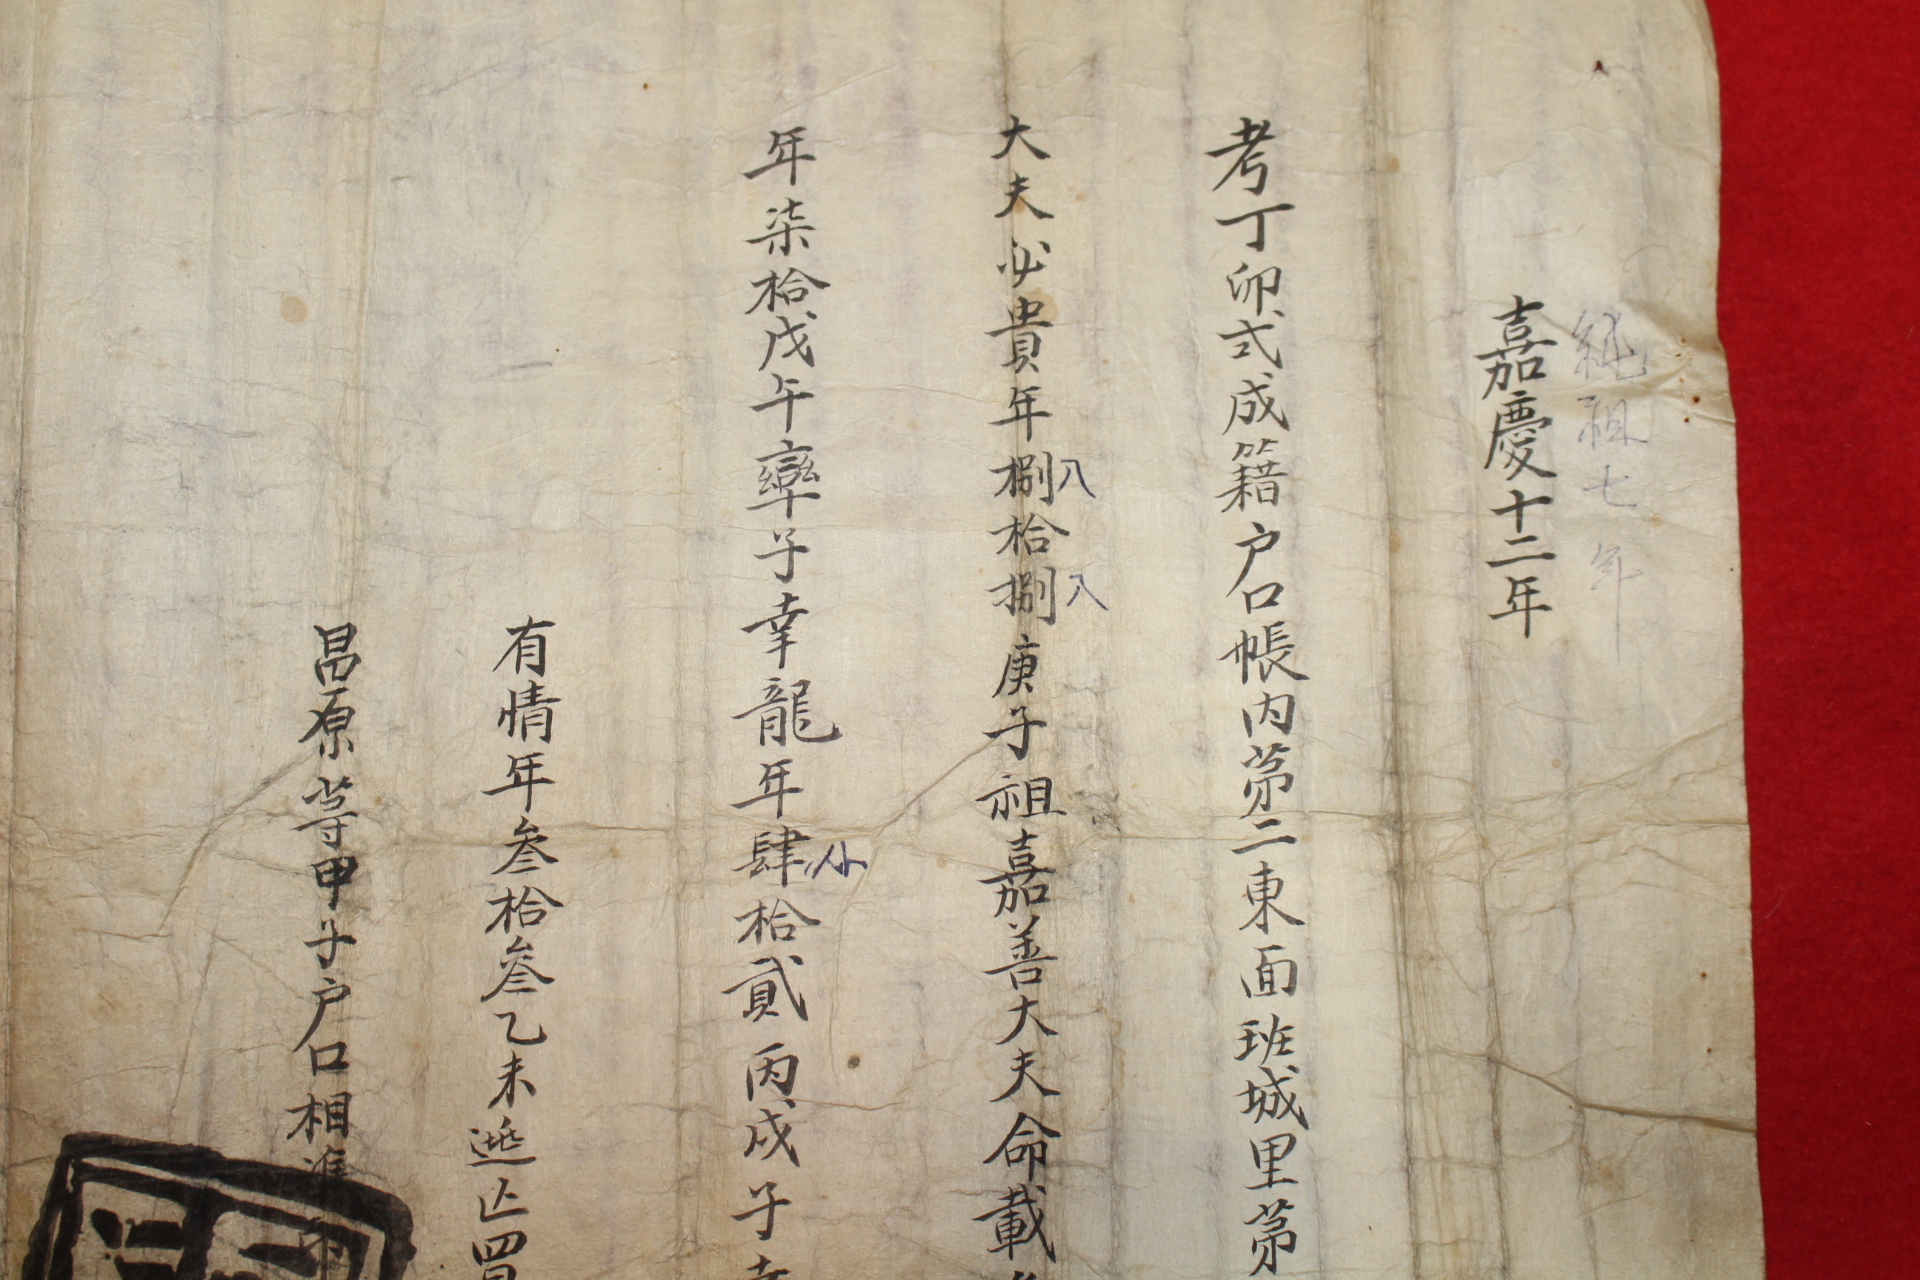 純祖七年
嘉慶十二年
考丁卯式成籍户口帳內第二東面班城里第
大夫必貴年捌八拾捌八庚子祖嘉善大夫命載
年柒拾戊午率子幸龍年肆拾貳丙戌子幸
有情年叁拾叁乙未逃亡買
昌原等甲子户口相準印